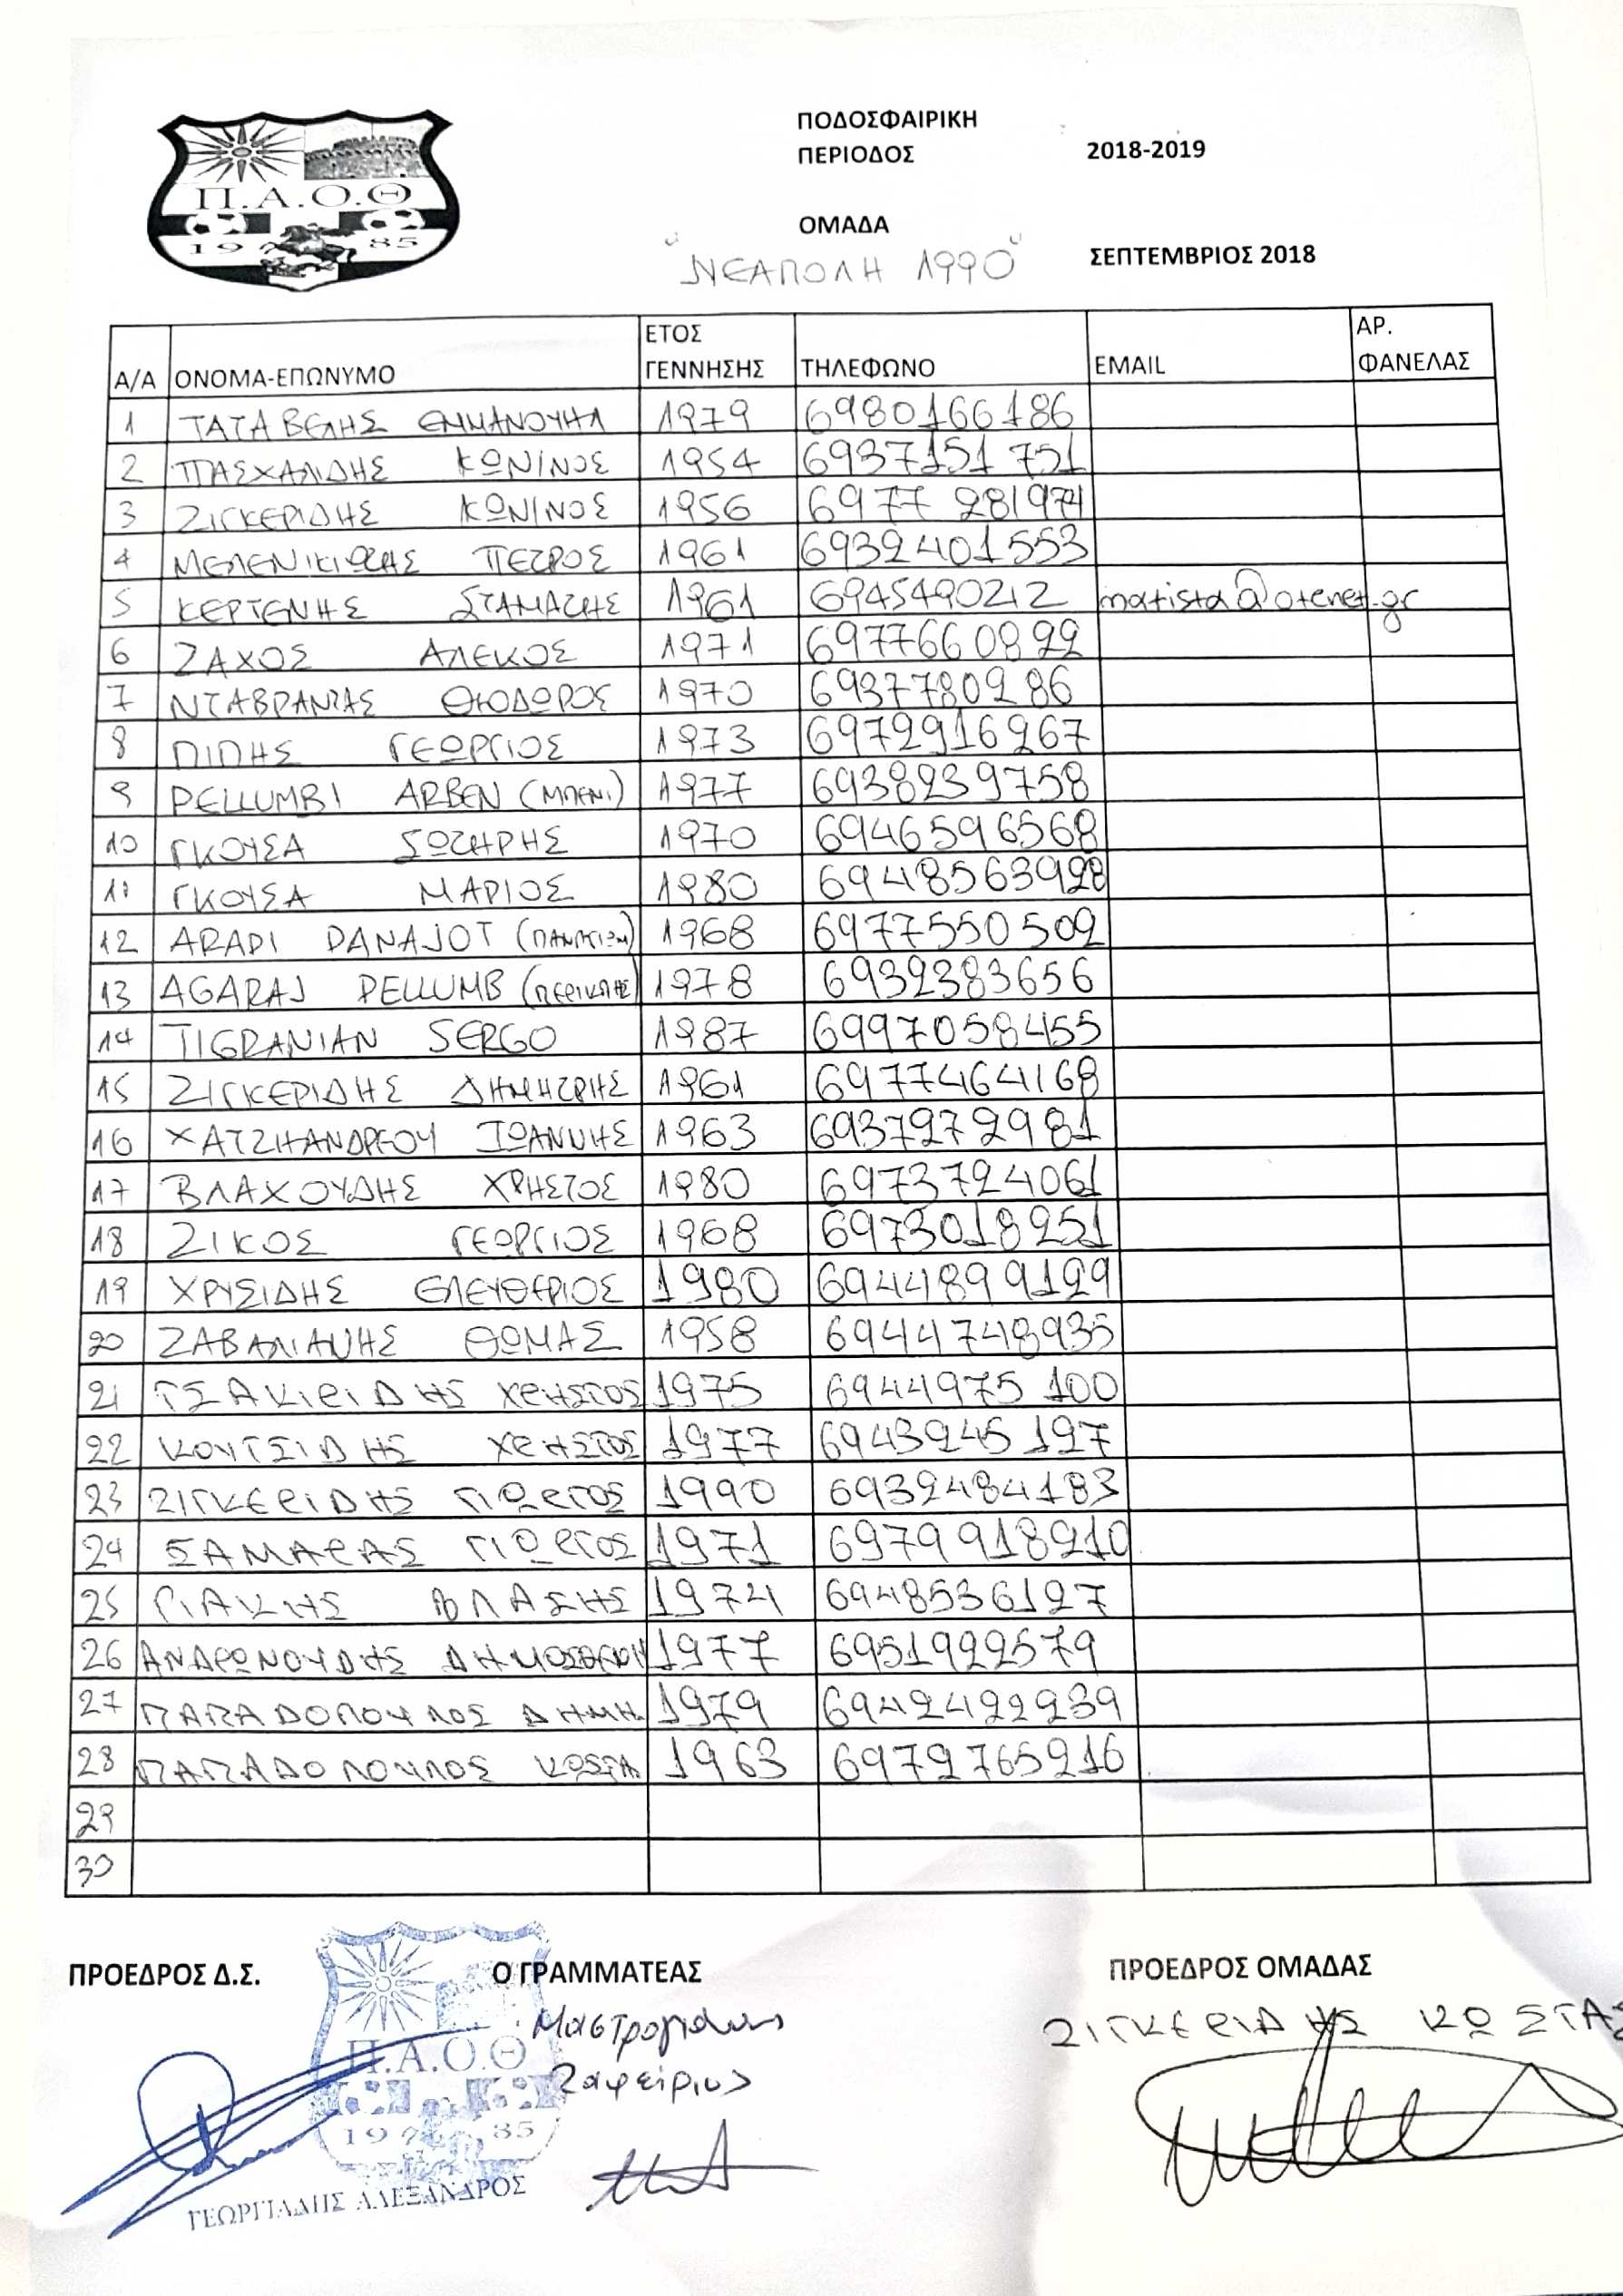 Π.Α.Ο.Θ
1985
ΠΟΔΟΣΦΑΙΡΙΚΗ
ΠΕΡΙΟΔΟΣ 2018-2019
ΟΜΑΔΑ
"ΝΕΑΠΟΛΗ 1990" ΣΕΠΤΕΜΒΡΙΟΣ 2018
Α/Α ΟΝΟΜΑ-ΕΠΩΝΥΜΟ ΕΤΟΣ ΓΕΝΝΗΣΗΣ ΤΗΛΕΦΩΝΟ EMAIL ΑΡ. ΦΑΝΕΛΑΣ
1 ΤΑΤΑΒΕΛΗΣ ΕΜΜΑΝΟΥΗΛ 1979 6980166186
2 ΠΑΣΧΑΛΙΔΗΣ ΚΩΝ/ΝΟΣ 1954 6937151751
3 ΖΙΓΚΕΡΙΔΗΣ ΚΩΝ/ΝΟΣ 1956 6977 281974
4 ΜΕΛΕΝΙΚΙΩΤΗΣ ΠΕΤΡΟΣ 1961 6932401553
5 ΚΕΡΤΕΝΗΣ ΣΤΑΜΑΤΗΣ 1961 6945490212 matista@otenet.gr
6 ΖΑΧΟΣ ΑΛΕΚΟΣ 1971 6977660822
7 ΝΤΑΒΡΑΝΤΑΣ ΘΕΟΔΩΡΟΣ 1970 6937780286
8 ΠΙΠΗΣ ΓΕΩΡΓΙΟΣ 1973 6972916267
9 PELLUMBI ARBEN (ΜΠΕΝΙ) 1977 6938239758
10 ΓΚΟΥΣΑ ΣΩΤΗΡΗΣ 1970 6946596568
11 ΓΚΟΥΣΑ ΜΑΡΙΟΣ 1980 6948563928
12 ARAPI PANAJOT 1968 6977550502
13 AGARAJ PELLUMB (ΠΕΡΙΚΛΗΣ) 1978 6932383656
14 TIGRANIAN SERGO 1987 6997058455
15 ΖΙΓΚΕΡΙΔΗΣ ΔΗΜΗΤΡΗΣ 1961 6977464168
16 ΧΑΤΖΗΑΝΔΡΕΟΥ ΙΩΑΝΝΗΣ 1963 6937272981
17 ΒΛΑΧΟΥΔΗΣ ΧΡΗΣΤΟΣ 1980 6973724061
18 ΖΙΚΟΣ ΓΕΩΡΓΙΟΣ 1968 6973018251
19 ΧΡΥΣΙΔΗΣ ΕΛΕΥΘΕΡΙΟΣ 1980 6944899129
20 ΖΑΒΑΛΙΑΝΗΣ ΘΩΜΑΣ 1958 6944748935
21 ΤΣΑΚΙΡΙΔΗΣ ΧΡΗΣΤΟΣ 1975 6944975100
22 ΚΟΥΤΣΙΔΗΣ ΧΡΗΣΤΟΣ 1977 6943245127
23 ΖΙΓΚΕΡΙΔΗΣ ΓΙΩΡΓΟΣ 1990 6932484183
24 ΣΑΜΑΡΑΣ ΓΙΩΡΓΟΣ 1971 6979918210
25 ΓΙΑΚΗΣ ΒΛΑΣΗΣ 1974 6948536127
26 ΑΝΔΡΩΝΟΥΔΗΣ 1977 6951922579
27 ΠΑΠΑΔΟΠΟΥΛΟΣ ΔΗΜΗ. 1979 6942422239
28 ΠΑΠΑΔΟΠΟΥΛΟΣ ΚΩΣΤΑ 1963 6972765216
29
30
ΠΡΟΕΔΡΟΣ Δ.Σ. Ο ΓΡΑΜΜΑΤΕΑΣ ΠΡΟΕΔΡΟΣ ΟΜΑΔΑΣ
Μαστρογιάννης ΖΙΓΚΕΡΙΔΗΣ ΚΩΣΤΑΣ
Ζαφείριος
Π.Α.Ο.Θ
1985
ΓΕΩΡΓΙΑΔΗΣ ΑΛΕΞΑΝΔΡΟΣ